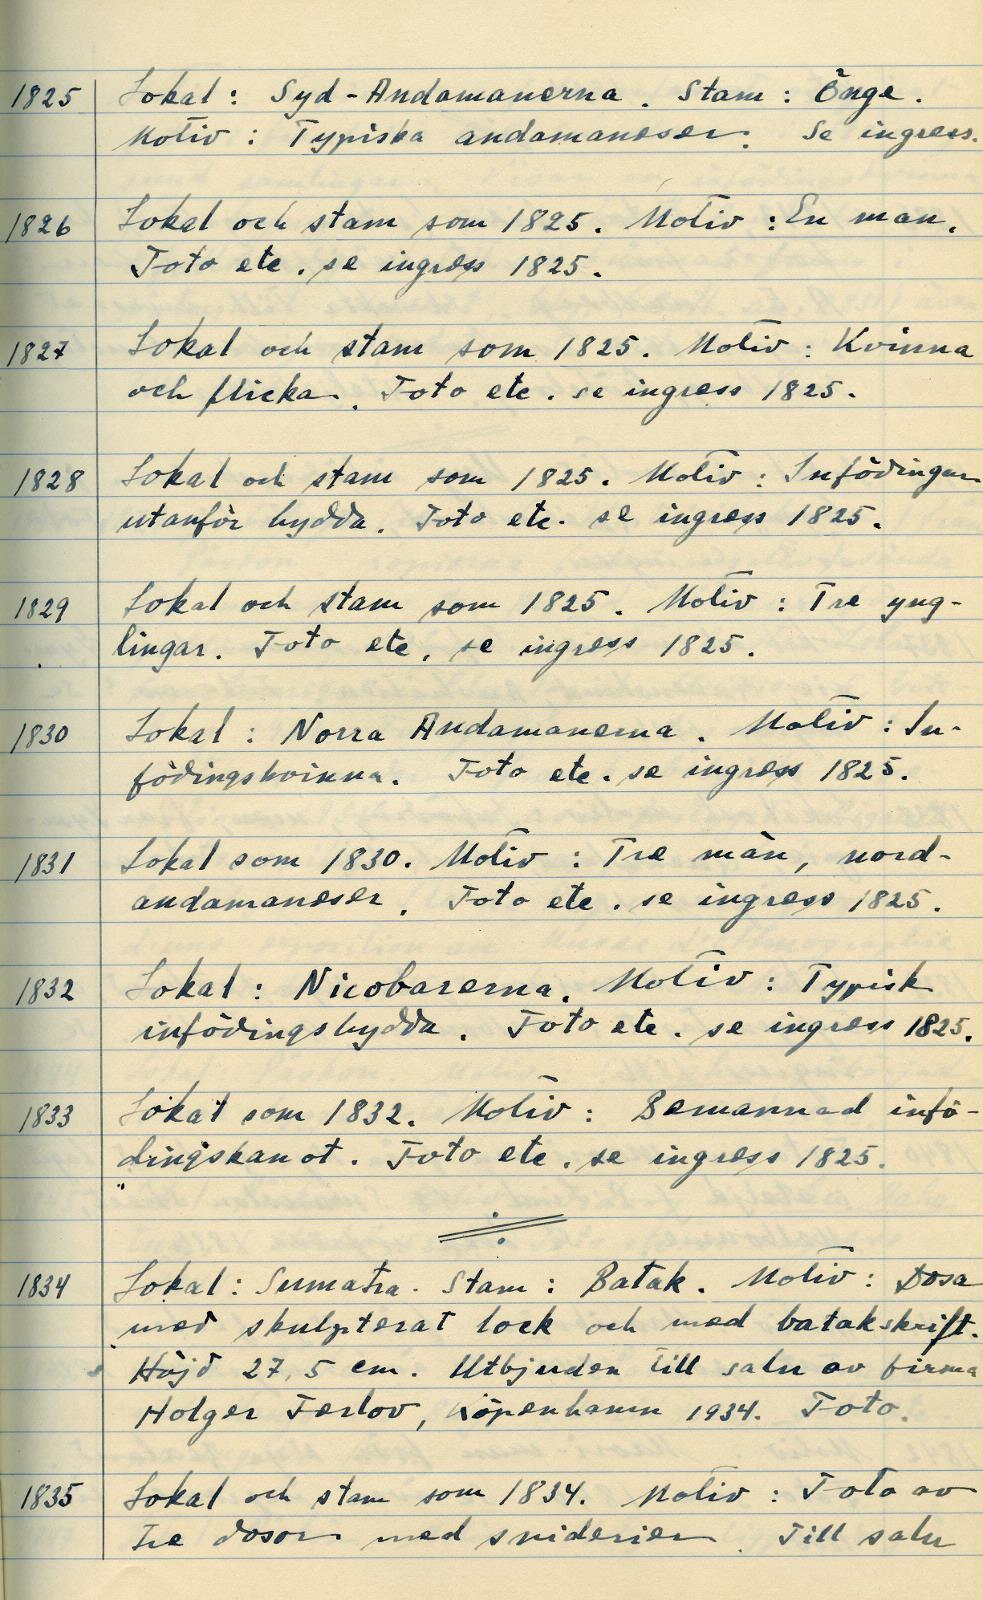 1825 Lokal: Syd-Andamanerna. Stam: Önge.
Motiv: Typiska andamaneser. Se ingress.
1826 Lokal och stam som 1825. Motiv: En man.
Foto etc. se ingress 1825.
1827 Lokal och stam som 1825. Motiv: Kvinna
och flicka. Foto etc. se ingress 1825.
1828 Lokal och stam som 1825. Motiv: Infödingar
utanför hydda. Foto etc. se ingress 1825.
1829 Lokal och stam som 1825. Motiv: Tre yng-
lingar. Foto etc. se ingress 1825.
1830 Lokal: Norra Andamanerna. Motiv: In-
födingskvinna. Foto etc. se ingress 1825.
1831 Lokal som 1830. Motiv: Tre män, nord-
andamaneser. Foto etc. se ingress 1825.
1832 Lokal: Nicobarerna. Motiv: Typisk
infödingshydda. Foto etc. se ingress 1825.
1833 Lokal som 1832. Motiv: Bemannad infö-
dingskanot. Foto etc. se ingress 1825.
1834 Lokal: Sumatra. Stam: Batak. Motiv: Dosa
med skulpterat lock och med batakskrift.
Höjd 27,5 cm. Utbjuden till salu av firma
Holger Ferlov, Köpenhamn 1934. Foto.
1835 Lokal och stam som 1834. Motiv: Foto av
tre dosor med sniderier. Till salu